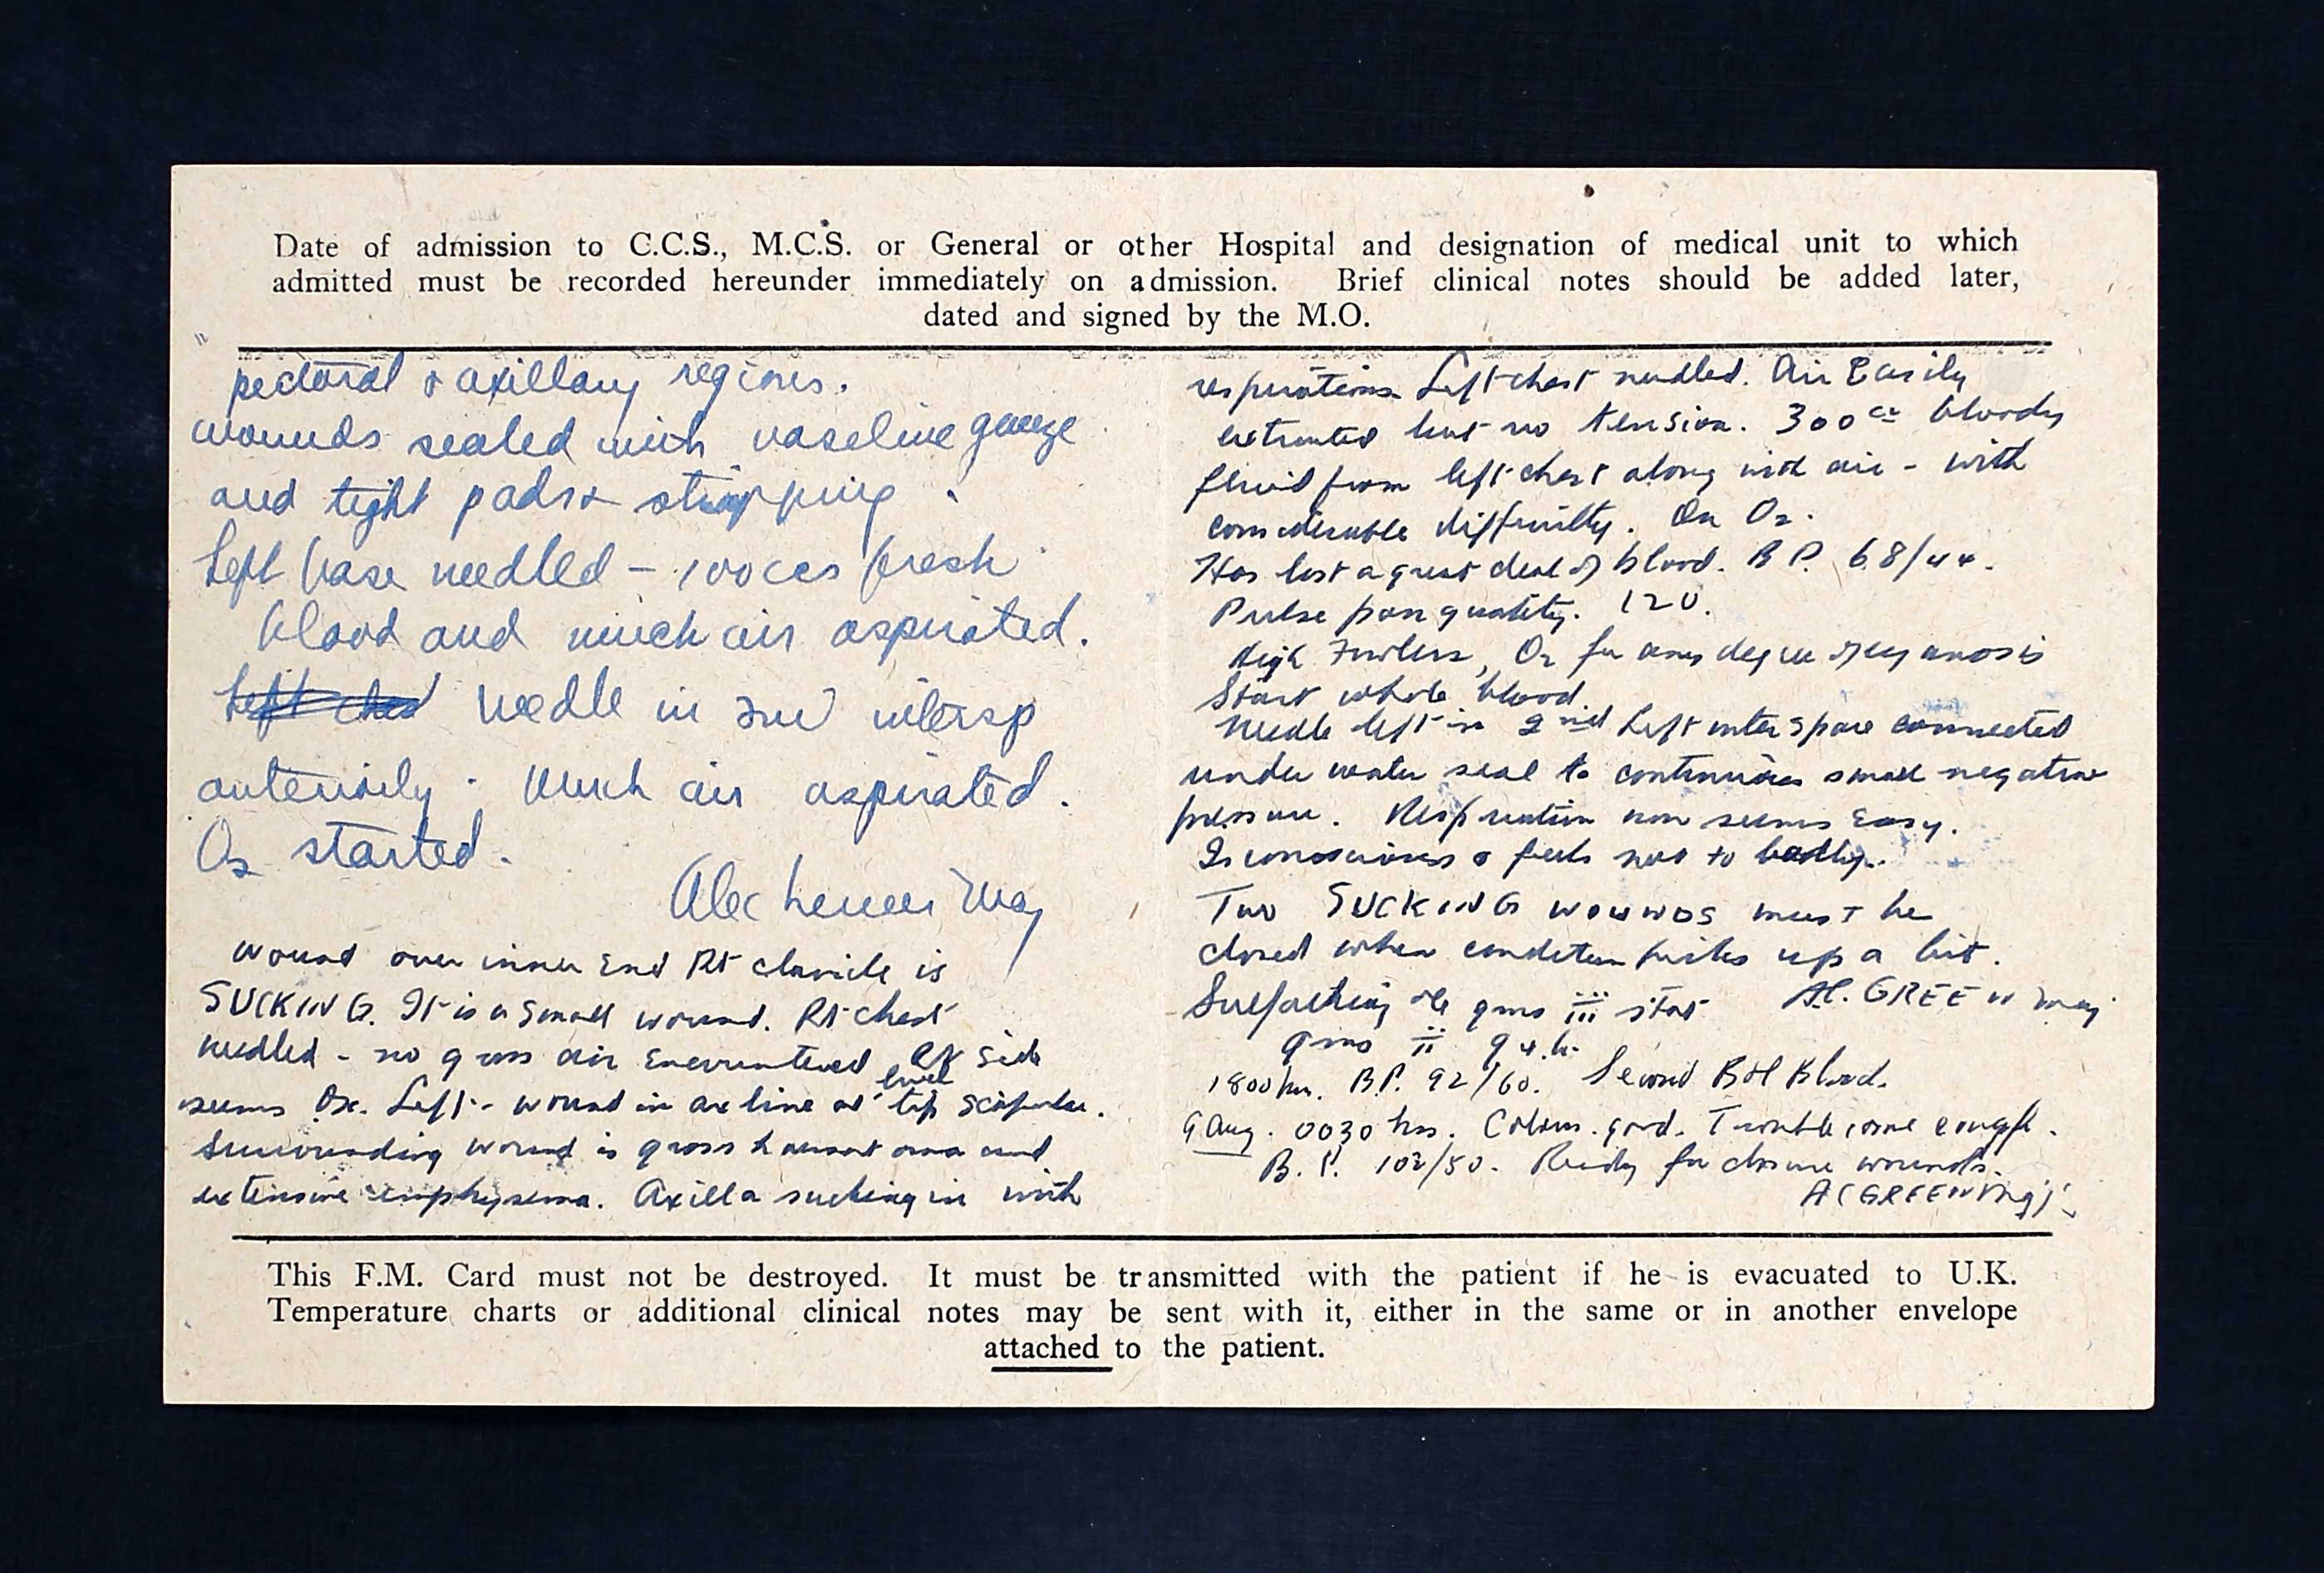 Date of admission to C.C.S., M.C.S. or General or other Hospital and designation of medical unit to which
admitted must be recorded hereunder immediately on admission. Brief clinical notes should be added later,
dated and signed by the M.O.
pectoral & axillary regions.
wounds sealed with vaseline gauze
and tight pads & strapping.
Left base needled - 100 ccs fresh
blood and much air aspirated.
Left chest needle in 2nd intersp
anteriorly. Much air aspirated.
O2 started.
Alec Maj
Wound over inner end Rt clavicle is
SUCKING. It is a small wound. Rt chest
needled - no gross air encountered Rt side
seems OK. Left - wound in ax line at level tip scapulae.
Surrounding wound is gross haematoma and
extensive emphysema. Axilla sucking in with
respirations. Left chest needled. Air easily
extracted but no tension. 300 cc bloody
fluid from left chest along with air - with
considerable difficulty. On O2.
Has lost a great deal of blood. B.P. 68/44.
Pulse poor quality. 120.
High Fowlers, O2 for any degree of cyanosis
Start whole blood.
Needle left in 2nd Left interspace connected
under water seal to continuous small negative
pressure. Respiration now seems easy.
Is conscious & feels not to badly.
Two SUCKING WOUNDS must be
closed when condition picks up a bit.
gms iii stat A.C. GREEN Maj
gms ii q 4.h.
1800 hrs. B.P. 92/60. Second Btl Blood.
9 Aug. 0030 hrs. Colour good. Troublesome cough.
B.P. 102/50. Ready for closure wounds.
A C GREEN Maj
This F.M. Card must not be destroyed. It must be transmitted with the patient if he is evacuated to U.K.
Temperature charts or additional clinical notes may be sent with it, either in the same or in another envelope
attached to the patient.